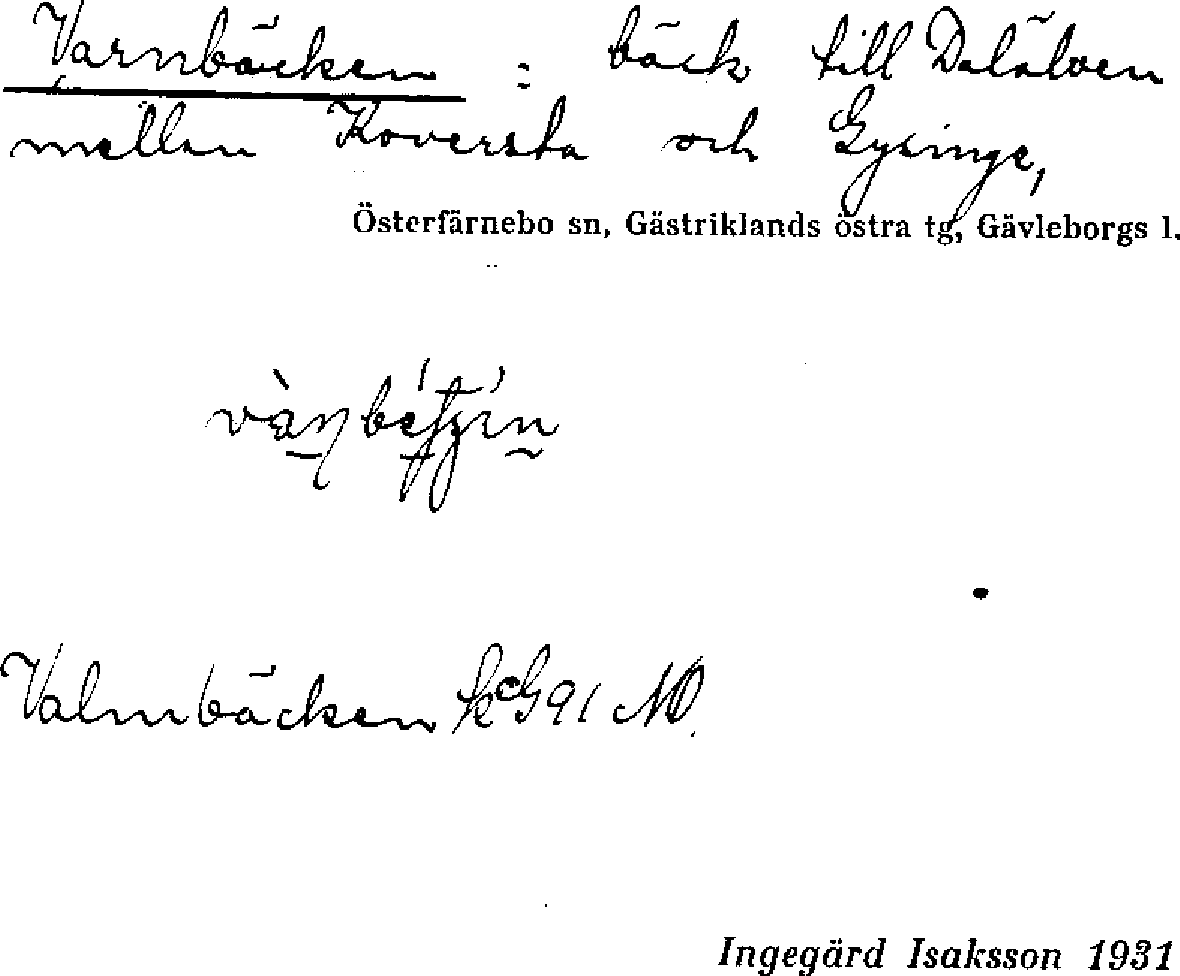 Varnbäcken : bäck till Dalälven
mellan Koversta och Gysinge,
Österfärnebo sn, Gästriklands östra tg, Gävleborgs l.
Valmbäcken kG91 NO.
Ingegärd Isaksson 1931